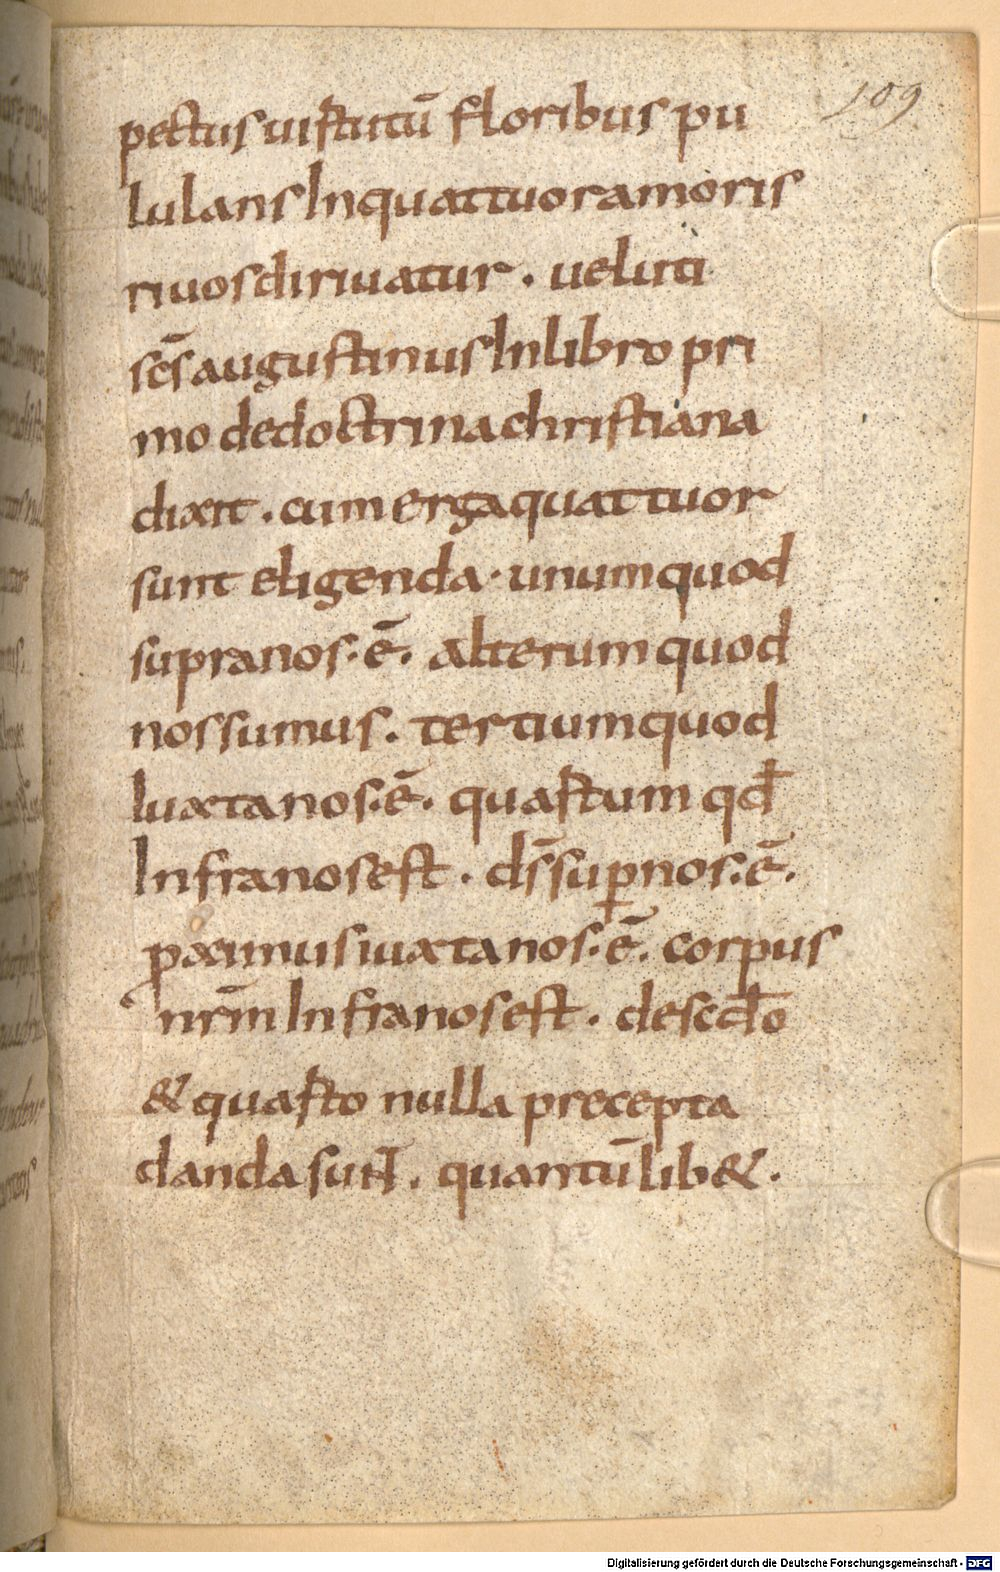 109
pectus uirtutū floribus pu
lulans In quattuor amoris
riuos diriuatur . ueluti
scs̄ augustinus In libro pri
mo de doctrina christiana
dixit . cum erga quattuor
sunt eligenda · unum quod
supra nos · ē · alterum quod
nos sumus . tertium quod
Iuxta nos · ē · quartum qđ
Infra nos est . ds̄ suꝑ nos · ē ·
ꝓximus iuxta nos · ē · corpus
nr̄m Infra nos est . de scđo
& quarto nulla precepta
danda sunt . quantū lib& ·
Digitalisierung gefördert durch die Deutsche Forschungsgemeinschaft - DFG